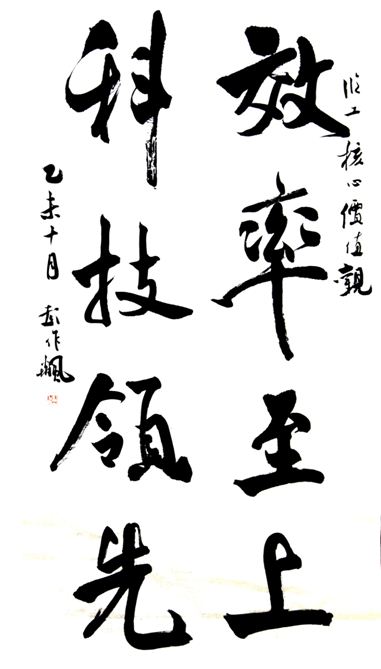 临工核心價值觀
效率至上
科技領先
乙未十月